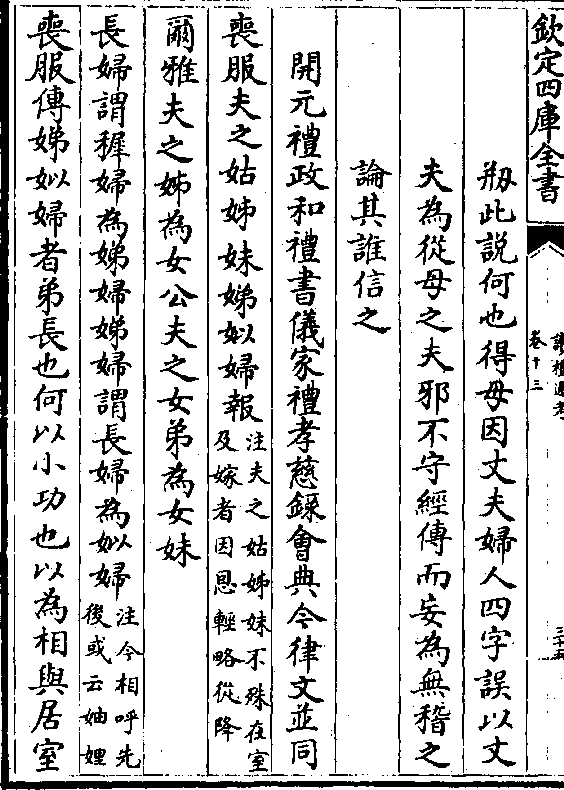 欽定四庫全書
讀禮通考
卷十三
剏此說何也得毋因丈夫婦人四字誤以丈
夫為從母之夫邪不守經傳而妄為無稽之
論其誰信之
開元禮政和禮書儀家禮孝慈錄會典今律文並同
喪服夫之姑姊妹娣姒婦報
注夫之姑姊妹不殊在室
及嫁者因恩輕略從降
爾雅夫之姊為女公夫之女弟為女妹
長婦謂稺婦為娣婦娣婦謂長婦為姒婦
注今相呼先
後或云妯娌
喪服傳娣姒婦者弟長也何以小功也以為相與居室